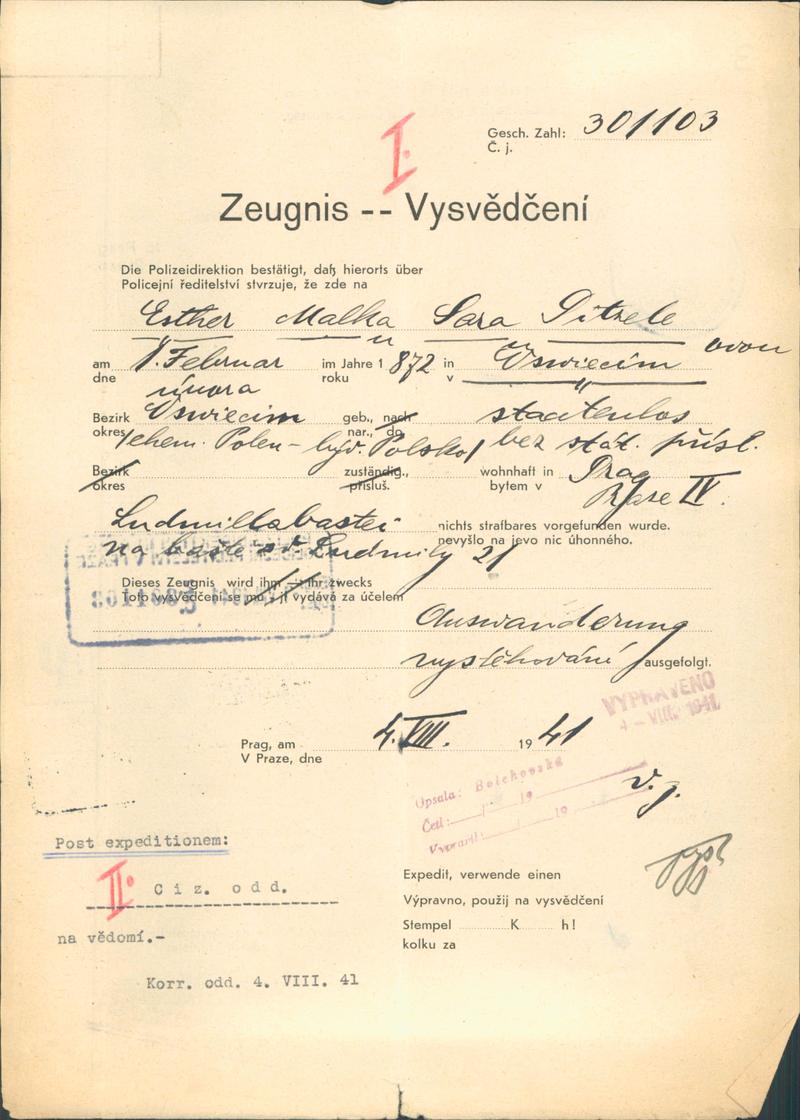 I.
Gesch. Zahl: 301103
Č. j.
Zeugnis -- Vysvědčení
Die Polizeidirektion bestätigt, daß hierorts über
Policejní ředitelství stvrzuje, že zde na
Esther Malka Sara Pitzele
am 1. Februar im Jahre 1 872 in Oswiecim
dne února roku v
Bezirk Oswiecim geb., nach staatenlos
okres nar., do
/ehem. Polen - býv. Polsko/ bez stát. přísl.
Bezirk zuständig., wohnhaft in Prag
okres přísluš. bytem v Praze IV.
Ludmillabastei nichts strafbares vorgefunden wurde.
na baště sv. Ludmily 21 nevyšlo na jevo nic úhonného.
Dieses Zeugnis wird ihm — ihr zwecks
Toto vysvědčení se mu - jí vydává za účelem
Auswanderung
vystěhování ausgefolgt.
VYPRAVENO
4 - VIII. 1941
Prag, am 4. VIII. 19 41
V Praze, dne
v. z.
Opsala: Bolchovská
Četl: 19
Vypravil: 19
Post expeditionem:
II. Ciz. odd.
na vědomí.-
Korr. odd. 4. VIII. 41
Expedit, verwende einen
Výpravno, použij na vysvědčení
Stempel K h!
kolku za